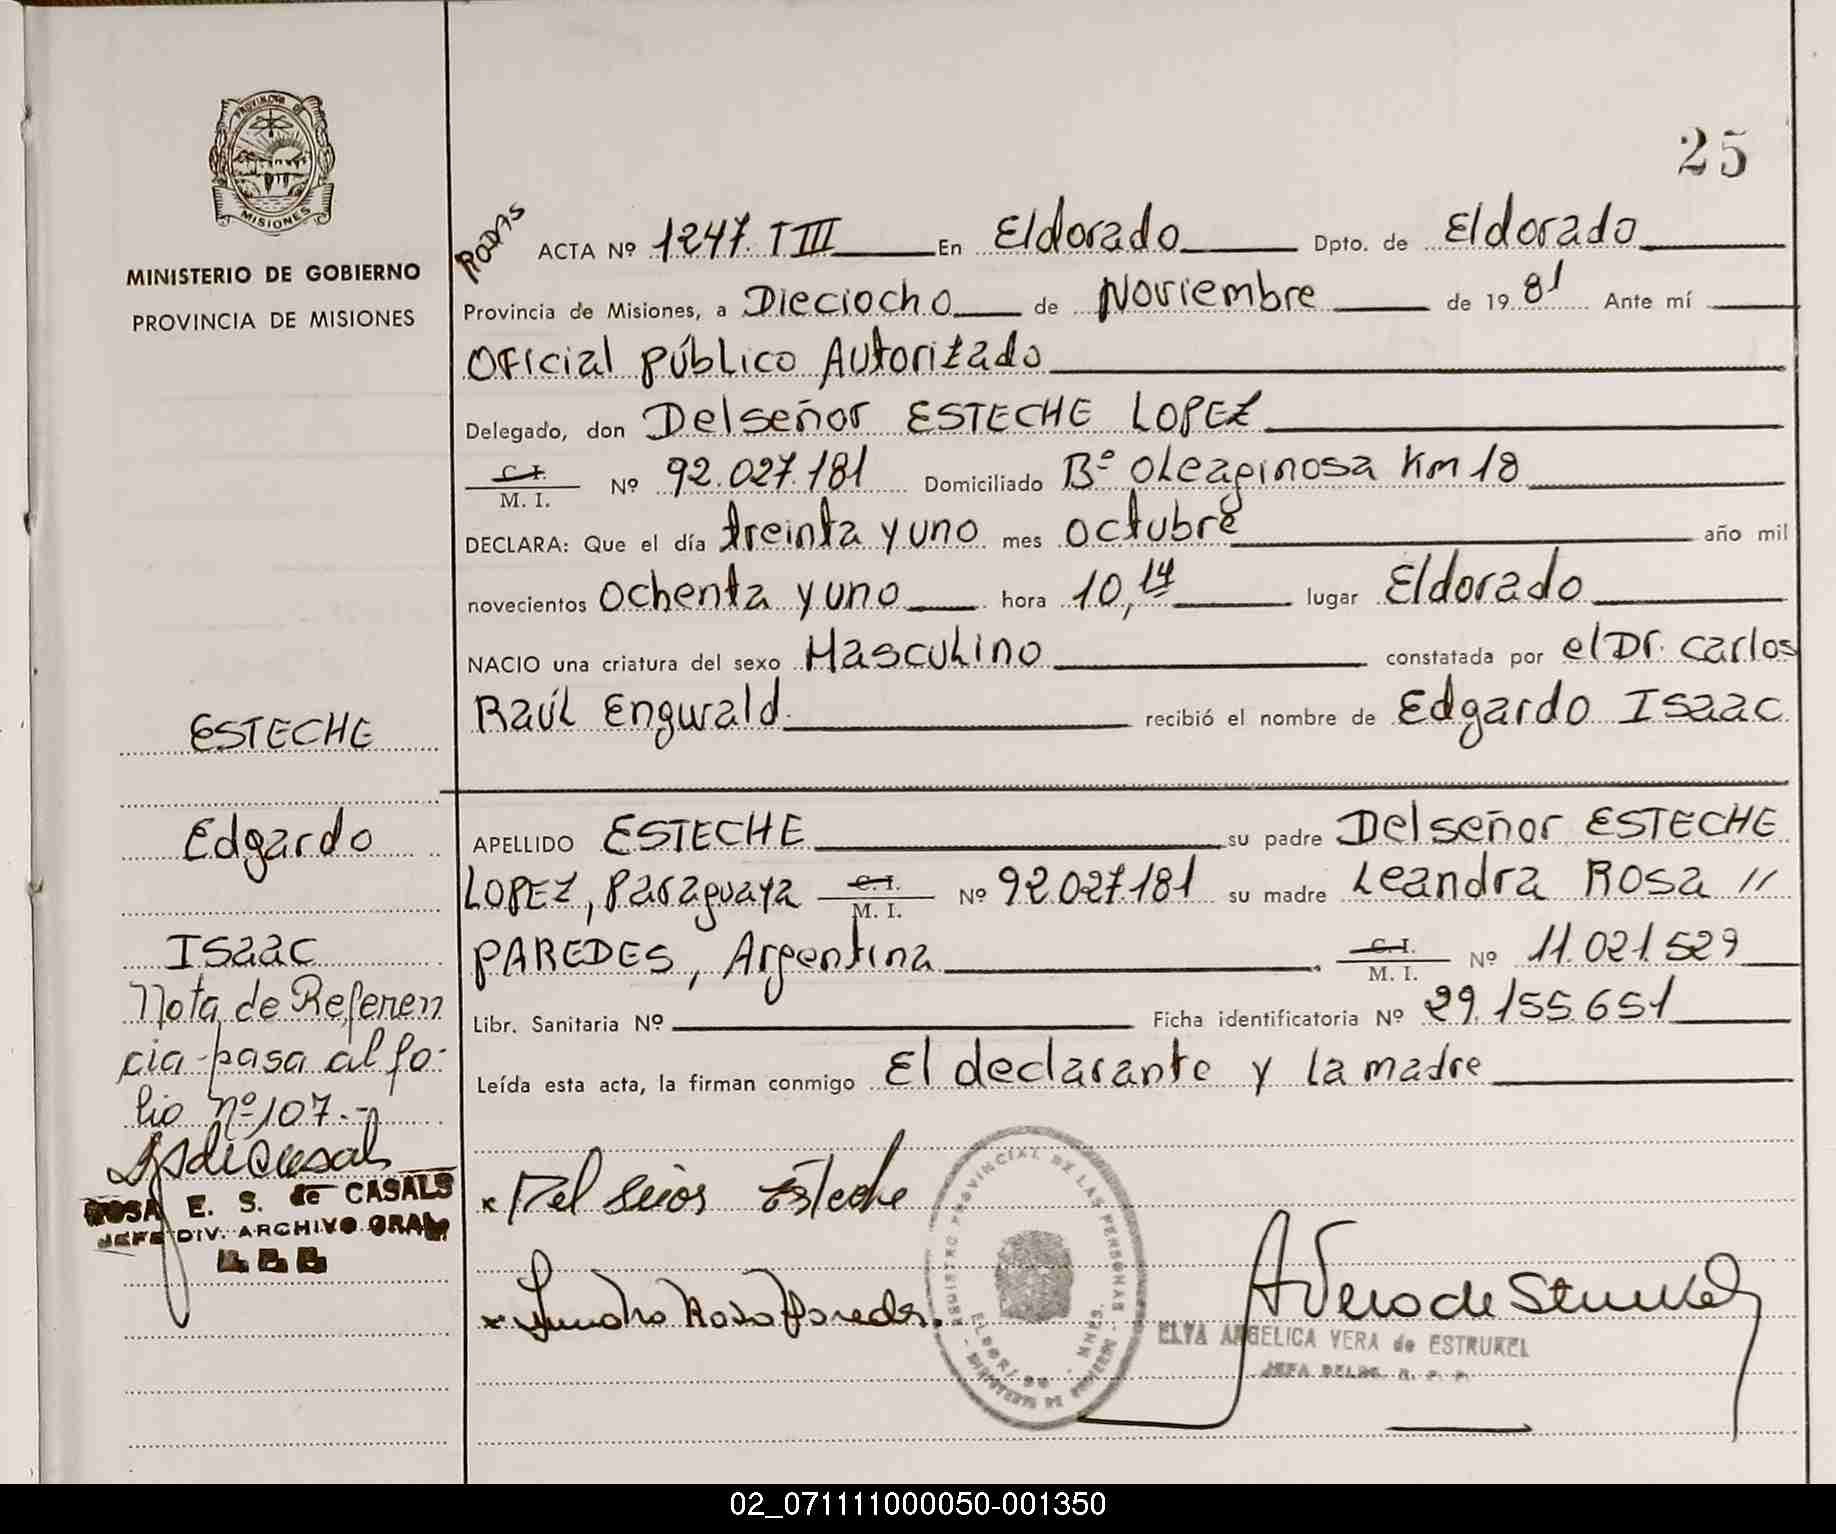 PROVINCIA DE
MISIONES
MINISTERIO DE GOBIERNO
PROVINCIA DE MISIONES
25
RODAS
ACTA Nº 1247. T III En Eldorado Dpto. de Eldorado
Provincia de Misiones, a Dieciocho de Noviembre de 19 81 Ante mí
Oficial Público Autorizado
Delegado, don Delseñor ESTECHE LOPEZ
C. I.
M. I. Nº 92.027.181 Domiciliado Bº Oleaginosa Km 18
DECLARA: Que el día treinta y uno mes octubre año mil
novecientos ochenta y uno hora 10,14 lugar Eldorado
NACIO una criatura del sexo Masculino constatada por el Dr. Carlos
Raúl Engwald recibió el nombre de Edgardo Isaac
ESTECHE
Edgardo
Isaac
Nota de Referen
cia-pasa al fo-
lio nº 107.-
ROSA E. S. de CASALS
JEFE DIV. ARCHIVO GRAL.
APELLIDO ESTECHE su padre Delseñor ESTECHE
LOPEZ, Paraguaya C. I. M. I. Nº 92.027.181 su madre Leandra Rosa //
PAREDES, Argentina C. I. M. I. Nº 11.021.529
Libr. Sanitaria Nº Ficha identificatoria Nº 29.155.651
Leída esta acta, la firman conmigo El declarante y la madre
x Del seños Esteche
x Leandra Rosa Paredes.
REGISTRO PROVINCIAL DE LAS PERSONAS
ELDORADO - MNES.
MINISTERIO DE GOBIERNO
A Vera de Estrukel
ELVA ANGELICA VERA de ESTRUKEL
JEFA DELEG. R. P. P.
02_071111000050-001350